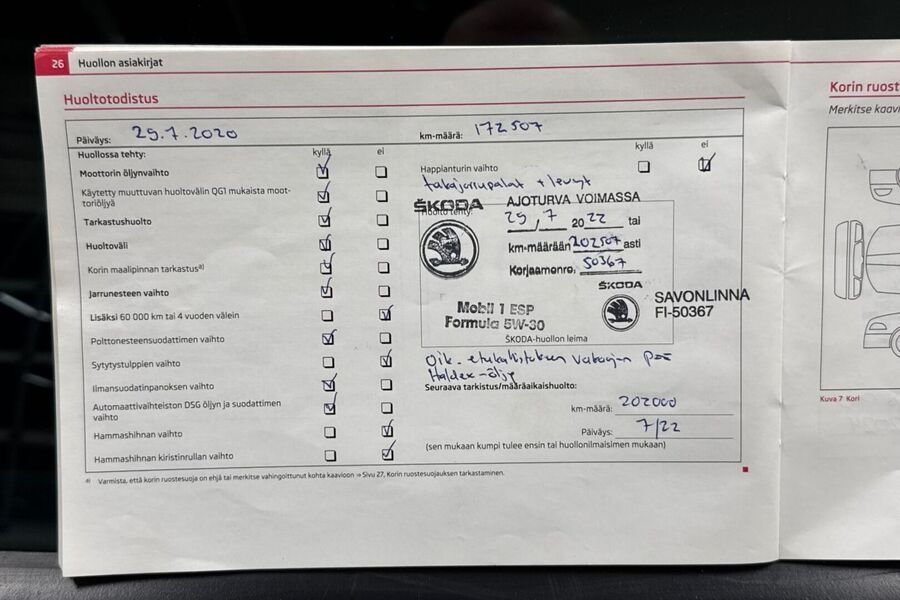 26 Huollon asiakirjat
Huoltotodistus
Päiväys: 29.7.2020
km-määrä: 172507
Huollossa tehty: kyllä ei
Moottorin öljynvaihto
Käytetty muuttuvan huoltovälin QG1 mukaista moot-
toriöljyä
Tarkastushuolto
Huoltoväli
Korin maalipinnan tarkastus a)
Jarrunesteen vaihto
Lisäksi 60 000 km tai 4 vuoden välein
Polttonesteensuodattimen vaihto
Sytytystulppien vaihto
Ilmansuodatinpanoksen vaihto
Automaattivaihteiston DSG öljyn ja suodattimen
vaihto
Hammashihnan vaihto
Hammashihnan kiristinrullan vaihto
kyllä ei
Happianturin vaihto
takajarrupalat + levyt
Huolto tehty:
ŠKODA
AJOTURVA VOIMASSA
29 / 7 2022 tai
km-määrään 202507 asti
Korjaamonro. 50367
Mobil 1 ESP
Formula 5W-30
ŠKODA
SAVONLINNA
FI-50367
ŠKODA-huollon leima
Oik. etukallistuksen vakaajan
Haldex-öljy
Seuraava tarkistus/määräaikaishuolto:
km-määrä: 202000
Päiväys: 7/22
(sen mukaan kumpi tulee ensin tai huollonilmaisimen mukaan)
a) Varmista, että korin ruostesuoja on ehjä tai merkitse vahingoittunut kohta kaavioon ⇒ Sivu 27, Korin ruostesuojauksen tarkastaminen.
Korin ruost
Merkitse kaavi
Kuva 7 Kori